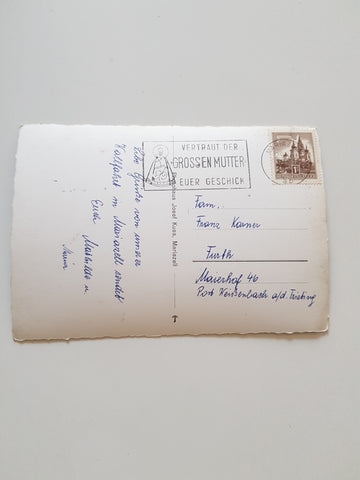 Liebe Grüße von unserer
Wallfahrt in Mariazell sendet
Euch Mathilde u.
Maria
VERTRAUT DER
GROSSEN MUTTER
EUER GESCHICK
Josef Kuss, Mariazell
Fam.
Franz Karner
Furth
Maierhof 46
Post Weissenbach a/d. Triesting